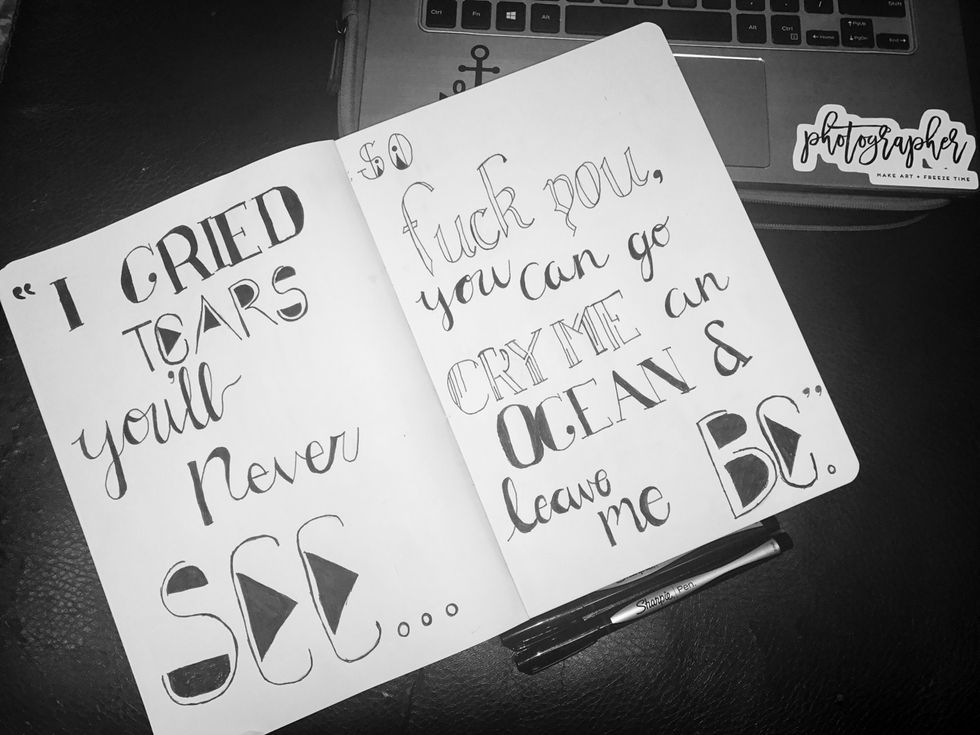 Ctrl Fn Alt Alt Ctrl Home PgUp PgDn End Shift
photographer
MAKE ART + FREEZE TIME
“I CRIED
TEARS
you'll
never
SEE...
SO
fuck you,
you can go
CRY ME an
OCEAN &
leave
me BE.”
Sharpie Pen.